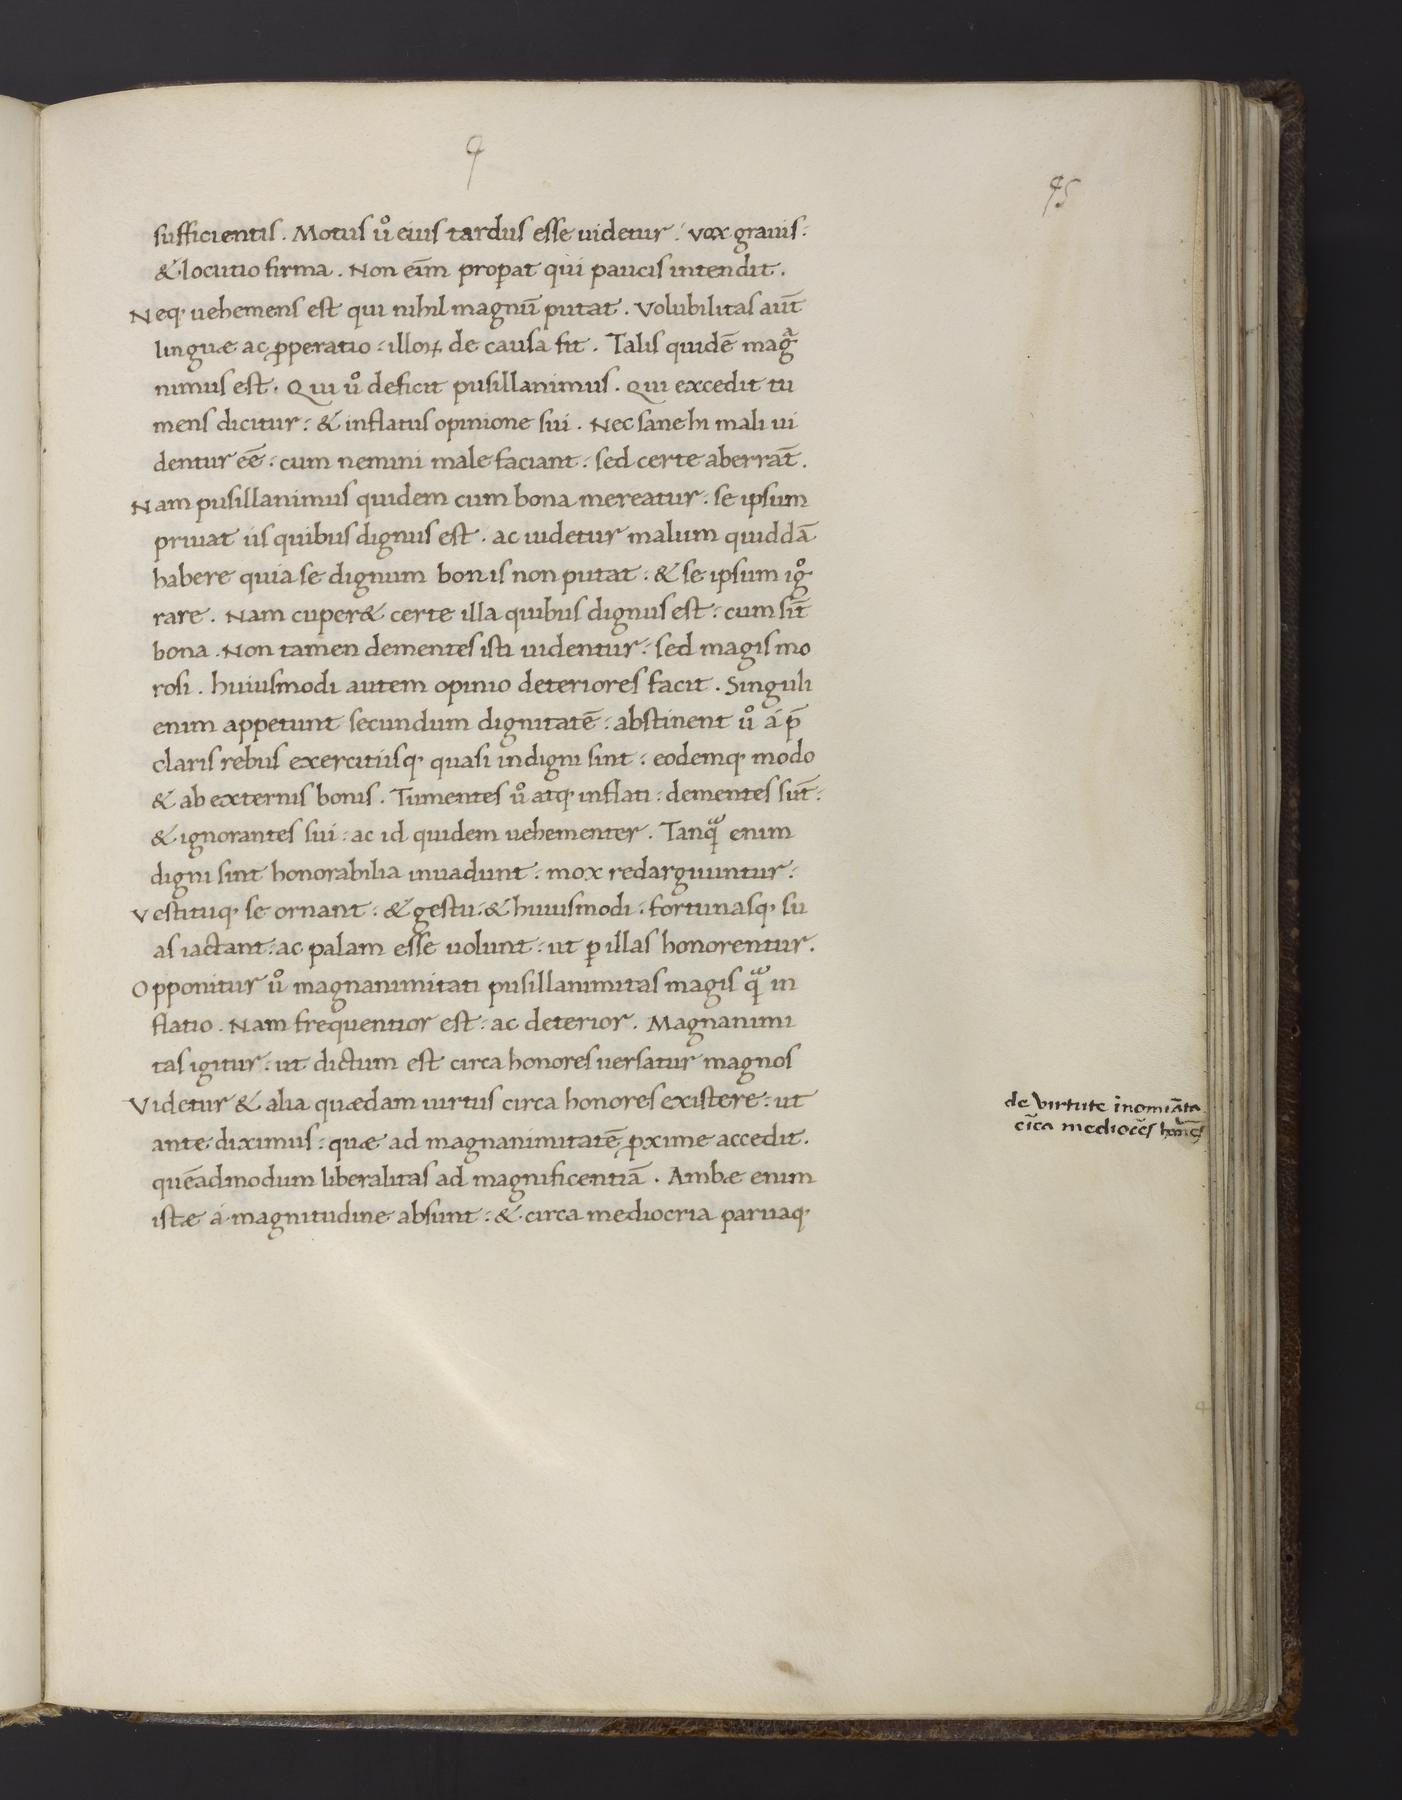 4
45
sufficientis. Motus uͦ eius tardus esse uidetur: vox grauis:
& locutio firma. Non eīm properat qui paucis intendit.
Neq; uehemens est qui nihil magnū putat. Volubilitas aūt
linguæ ac ꝓperatio: illoꝝ de causa fit. Talis quidē magᷓ
nimus est. Qui uͦ deficit pusillanimus. Qui excedit tu
mens dicitur: & inflatus opinione sui. Nec sane hi mali ui
dentur eē: cum nemini male faciant: sed certe aberrāt.
Nam pusillanimus quidem cum bona mereatur: se ipsum
priuat iis quibus dignus est. ac uidetur malum quiddā
habere quia se dignum bonis non putat: & se ipsum igͦ
rare. Nam cuper& certe illa quibus dignus est: cum sīt
bona. Non tamen dementes isti uidentur: sed magis mo
rosi. huiusmodi autem opinio deteriores facit. Singuli
enim appetunt secundum dignitatē: abstinent uͦ á p̄
claris rebus exercitiisq; quasi indigni sint: eodemq; modo
& ab externis bonis. Tumentes uͦ atq; inflati: dementes sūt:
& ignorantes sui: ac id quidem uehementer. Tanqᷓ enim
digni sint honorabilia inuadunt: mox redarguuntur:
Vestituq; se ornant: & gestu: & huiusmodi: fortunasq; su
as iactant: ac palam esse uolunt: ut ꝑ illas honorentur.
Opponitur uͦ magnanimitati pusillanimitas magis qᷓ in
flatio. Nam frequentior est: ac deterior. Magnanimi
tas igitur: ut dictum est circa honores uersatur magnos
Videtur & alia quædam uirtus circa honores existere: ut
ante diximus: quæ ad magnanimitatē ꝓxime accedit.
quēadmodum liberalitas ad magnificentiā. Ambæ enim
istæ á magnitudine absunt: & circa mediocria paruaq;
de virtute inomīata
circa mediocēs